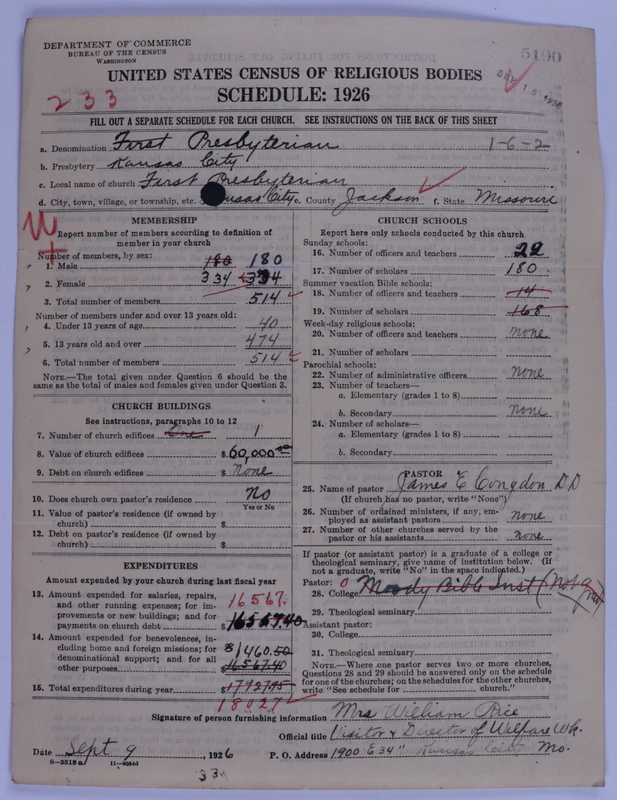 DEPARTMENT OF COMMERCE
BUREAU OF THE CENSUS
WASHINGTON
5190
UNITED STATES CENSUS OF RELIGIOUS BODIES
SCHEDULE: 1926
233
FILL OUT A SEPARATE SCHEDULE FOR EACH CHURCH. SEE INSTRUCTIONS ON THE BACK OF THIS SHEET
a. Denomination First Presbyterian 1-6-2
b. Presbytery Kansas City
c. Local name of church First Presbyterian
d. City, town, village, or township, etc. Kansas City e. County Jackson f. State Missouri
MEMBERSHIP
Report number of members according to definition of
member in your church
Number of members, by sex:
1. Male 180 180
2. Female 334 334
3. Total number of members 514
Number of members under and over 13 years old:
4. Under 13 years of age 40
5. 13 years old and over 474
6. Total number of members 514
NOTE.—The total given under Question 6 should be the
same as the total of males and females given under Question 3.
CHURCH BUILDINGS
See instructions, paragraphs 10 to 12
7. Number of church edifices One 1
8. Value of church edifices $ 60,000.00
9. Debt on church edifices $ None
10. Does church own pastor's residence? No
Yes or No
11. Value of pastor's residence (if owned by
church) $
12. Debt on pastor's residence (if owned by
church) $
EXPENDITURES
Amount expended by your church during last fiscal year
13. For salaries, repairs, 16567.
and other running expenses; for im-
provements or new buildings; and for
payments on church debt $ 16567.40
14. Amount expended for benevolences, in-
cluding home and foreign missions; for $1460.50
denominational support; and for all
other purposes $16567.40
15. Total expenditures during year $
18027
CHURCH SCHOOLS
Report here only schools conducted by this church
Sunday schools:
16. Number of officers and teachers 22
17. Number of scholars 180.
Summer vacation Bible schools:
18. Number of officers and teachers 14
19. Number of scholars 168
Week-day religious schools:
20. Number of officers and teachers none
21. Number of scholars
Parochial schools:
22. Number of administrative officers none
23. Number of teachers—
a. Elementary (grades 1 to 8)
b. Secondary none
24. Number of scholars—
a. Elementary (grades 1 to 8)
b. Secondary
PASTOR
25. Name of pastor James E Congdon DD
(If church has no pastor, write "None")
26. Number of ordained ministers, if any, em-
ployed as assistant pastors none
27. Number of other churches served by the
pastor or his assistants none
If pastor (or assistant pastor) is a graduate of a college or
theological seminary, give name of institution below. (If
not a graduate, write "No" in the space indicated.)
Pastor: 0
28. College Moody Bible Inst (Not Grad)
29. Theological seminary
Assistant pastor:
30. College
31. Theological seminary
NOTE.—Where one pastor serves two or more churches,
Questions 28 and 29 should be answered only on the schedule
for one of the churches; on the schedules for the other churches,
write "See schedule for church."
Signature of person furnishing information Mrs William Rice
Official title Visitor & Director of Welfare Wk.
Date Sept 9, 1926 P. O. Address 1900 E 34" Kansas City Mo.
8-5518a
334